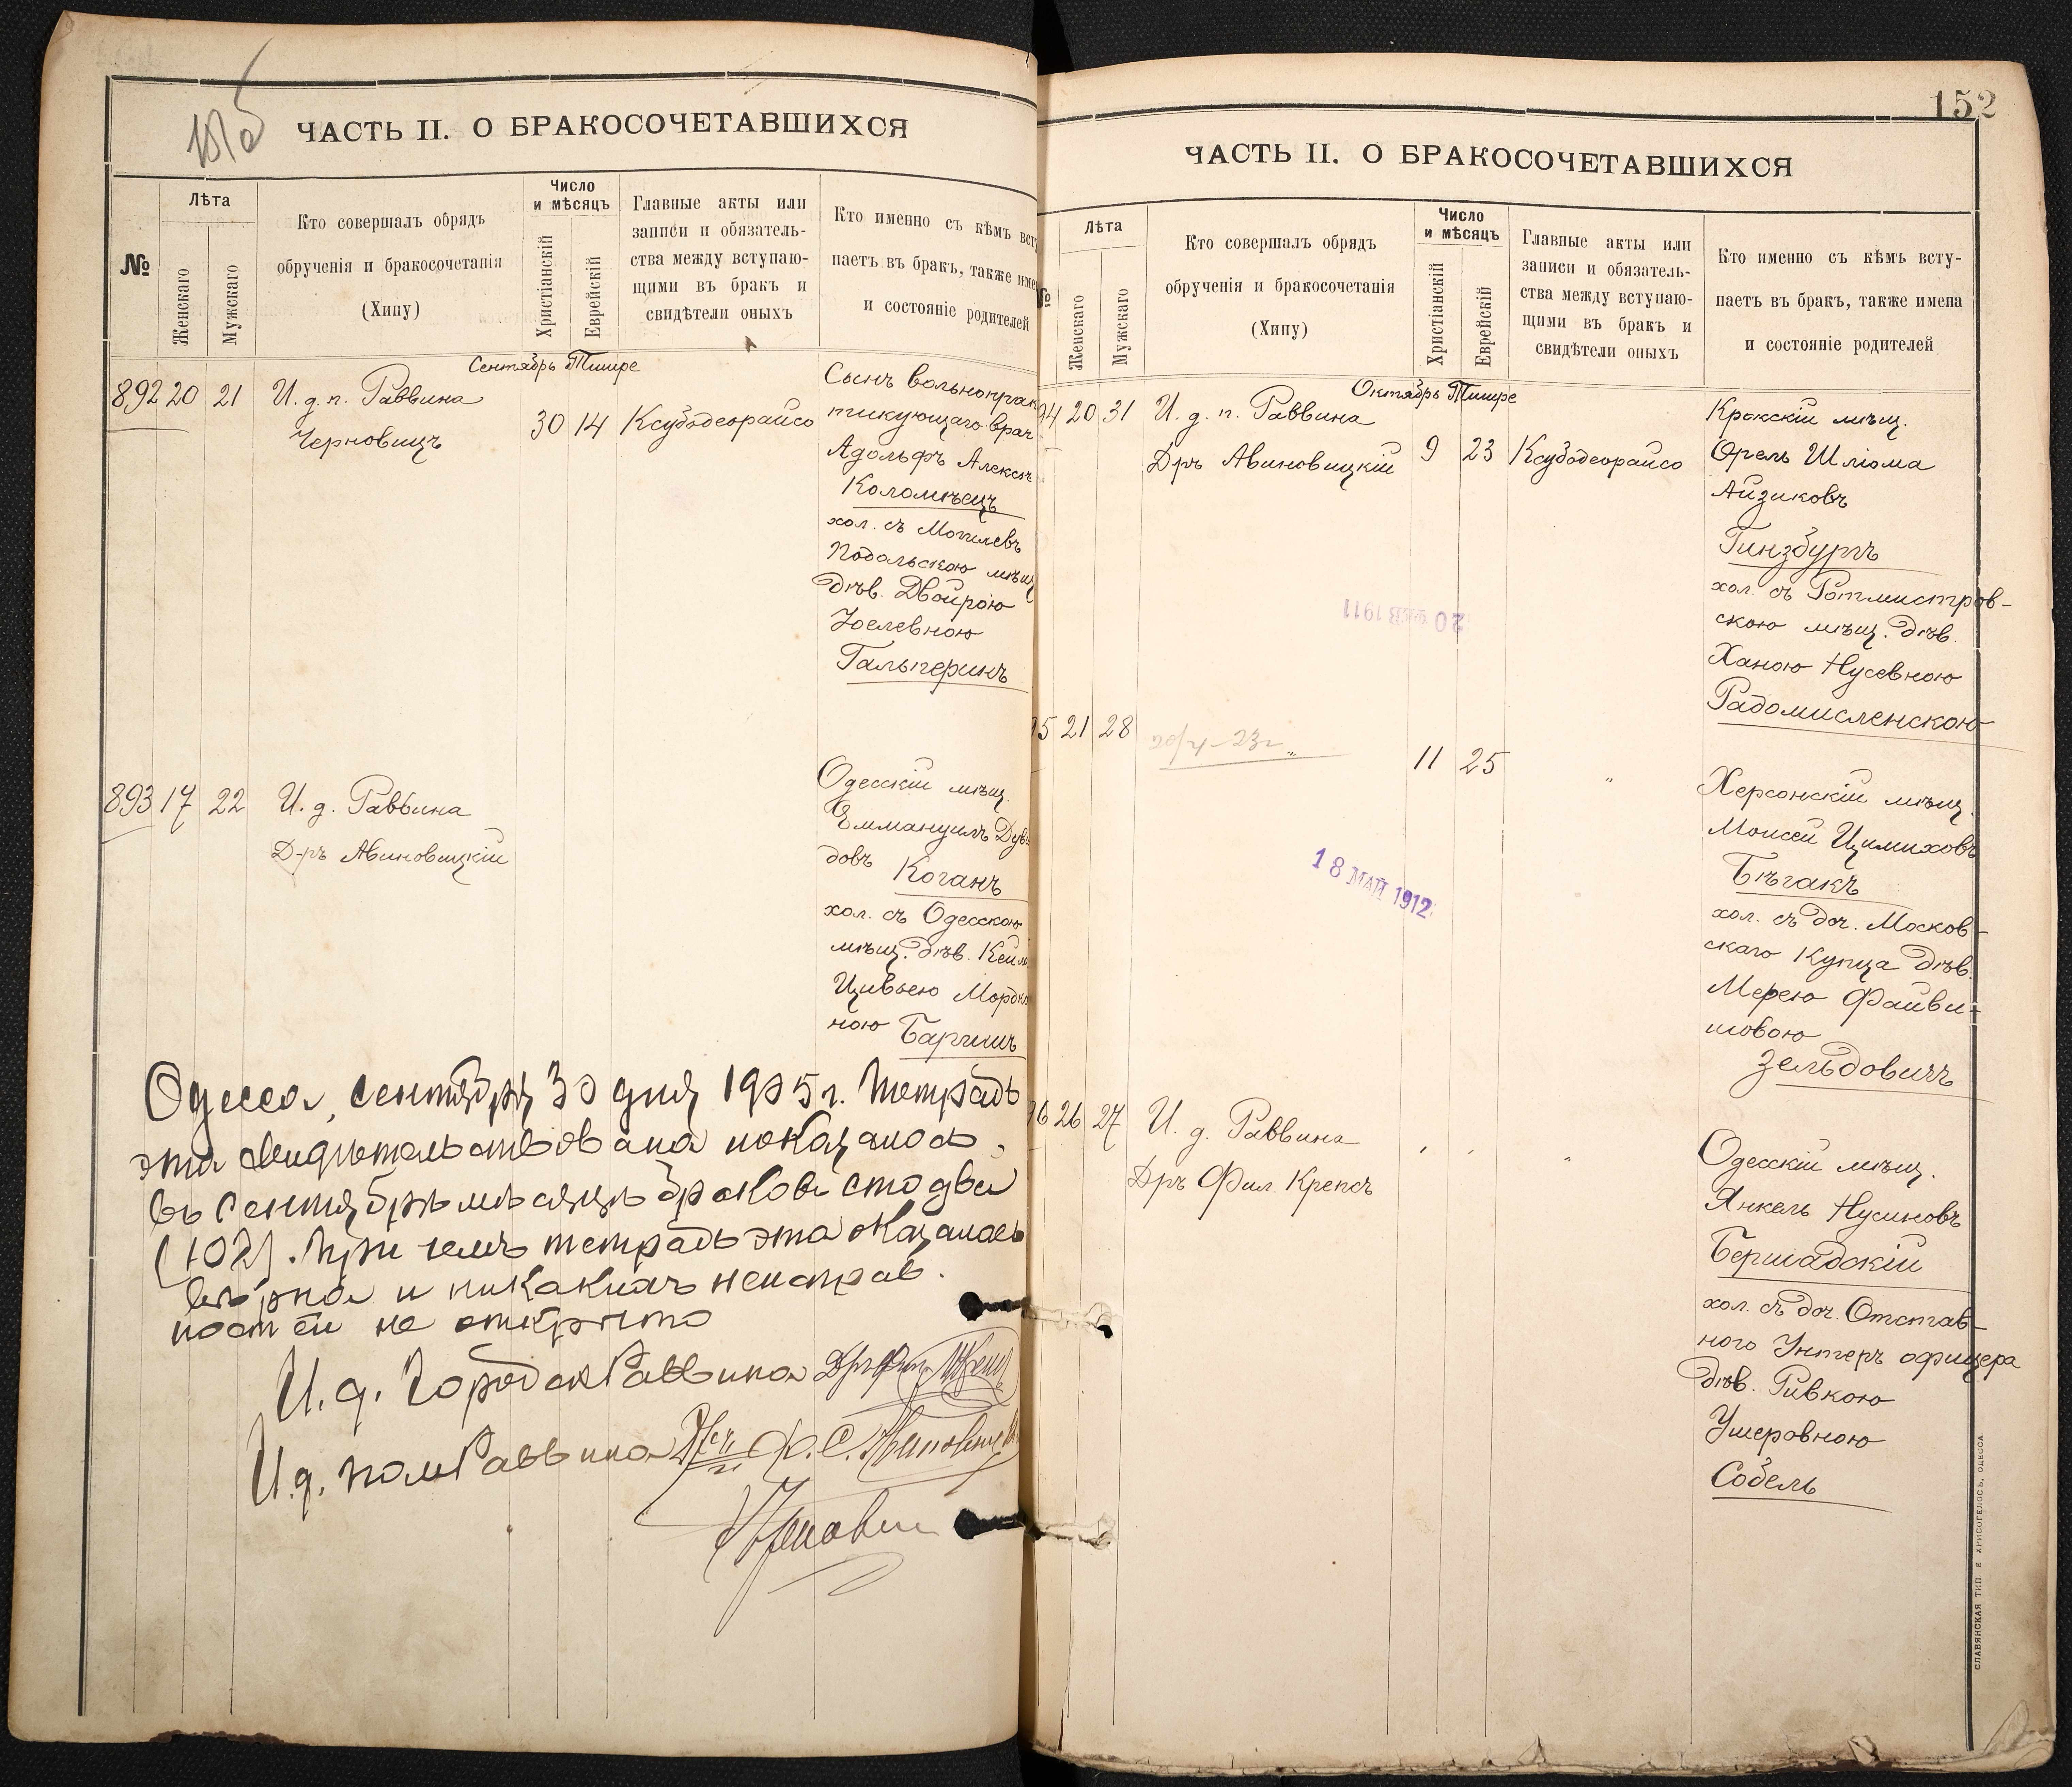 ЧАСТЬ II. О БРАКОСОЧЕТАВШИХСЯ
№
Лѣта
Женскаго
Мужскаго
Кто совершалъ обрядъ
обрученія и бракосочетанія
(Хипу)
Число
и мѣсяцъ
Христіанскій
Еврейскій
Главные акты или
записи и обязатель-
ства между вступаю-
щими въ бракъ и
свидѣтели оныхъ
Кто именно съ кѣмъ всту
паетъ въ бракъ, также име
и состояніе родителей
Сентябрь Тишре
892 20 21 И. д. п. Раввина
Черновицъ
30 14 Ксубодеорайсо
Сынъ вольнопрак
тикующаго врач
Адольфъ Алексѣ
Коломѣецъ
хол. съ Могилевъ
Подольскою мѣщ
дѣв. Двойрою
Іоселевною
Гальперинъ
893 17 22 И. д. Раввина
Д-ръ Авиновицкій
Одесскій мѣщ.
Еммануилъ Дуви
довъ Коганъ
хол. съ Одесскою
мѣщ. дѣв. Кейл
Цивьею Мордко
ною Баргишъ
Одесса, сентября 30 дня 1905 г. Тетрадь
эта свидѣтельствована показалось
въ Сентябрѣ мѣсяцѣ браковъ сто два
(102). При чемъ тетрадь эта оказалась
вѣрной и никакихъ неисправ.
ностей не открыто
И. д. Городск Раввина
И. д. пом Раввина
152
ЧАСТЬ II. О БРАКОСОЧЕТАВШИХСЯ
№
Лѣта
Женскаго
Мужскаго
Кто совершалъ обрядъ
обрученія и бракосочетанія
(Хипу)
Число
и мѣсяцъ
Христіанскій
Еврейскій
Главные акты или
записи и обязатель-
ства между вступаю-
щими въ бракъ и
свидѣтели оныхъ
Кто именно съ кѣмъ всту-
паетъ въ бракъ, также имена
и состояніе родителей
Октябрь Тишре
94 20 31 И. д. п. Раввина
Дръ Авиновицкій
9 23 Ксубодеорайсо
Крокскій мѣщ.
Орель Шліома
Айзиковъ
Гинзбургъ
хол. съ Ротмистров-
скою мѣщ. дѣв.
Ханою Нусевною
Радомисленскою
20 ФЕВ 1911
95 21 28
11 25 "
Херсонскій мѣщ.
Моисей Цимиховъ
Бѣгакъ
хол. съ доч. Москов-
скаго Купца дѣв.
Мерею Файви-
шовою
Зельдовичъ
18 МАЙ 1912
96 26 27 И. д. Раввина
Дръ Фил. Крепсъ
" " "
Одесскій мѣщ.
Янкель Нусиновъ
Бершадскій
хол. съ доч. Отстав-
ного Унтеръ офицера
дѣв. Ривкою
Ушеровною
Собель
СЛАВЯНСКАЯ ТИП. Е. ХРИСОГЕЛОСЪ, ОДЕССА